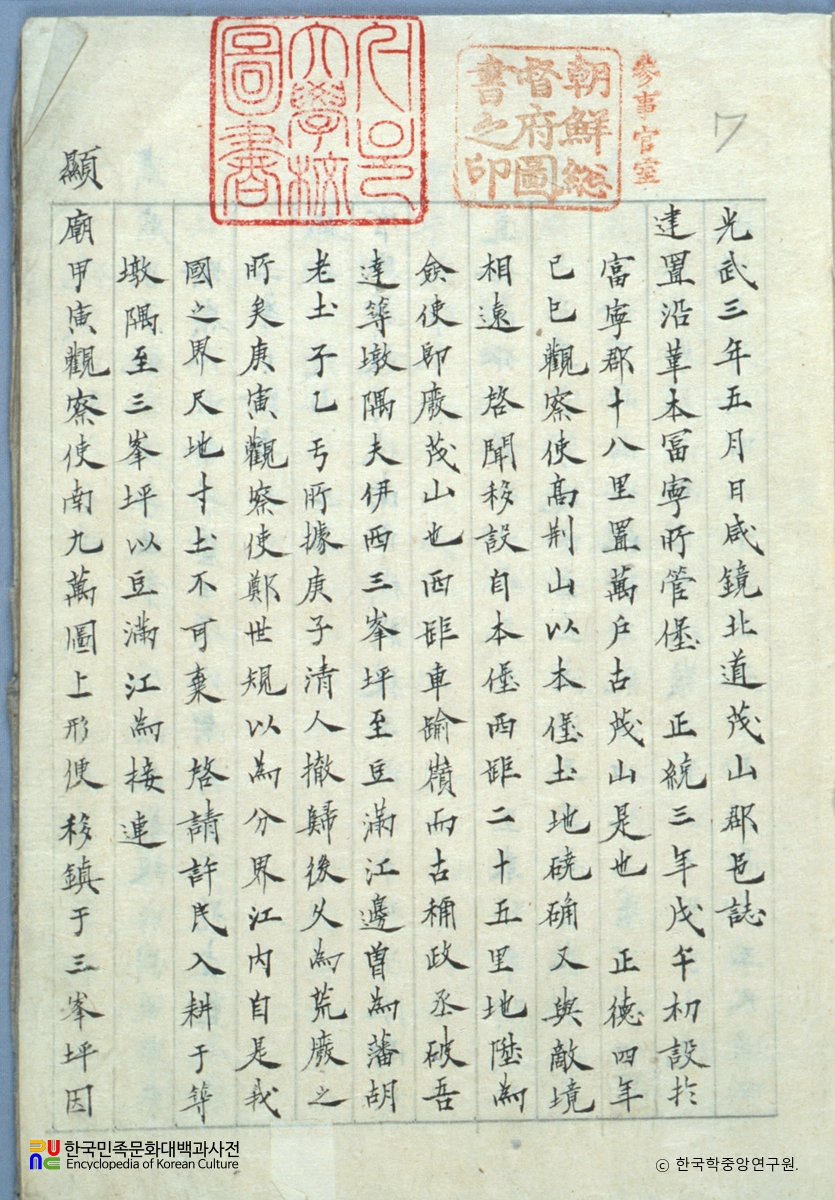 參事官室
朝鮮総
督府圖
書之印
서울
大學校
圖書
7
光武三年五月日咸鏡北道茂山郡邑誌
建置沿革本富寧所管堡 正統三年戊午初設於
富寧郡十八里置萬戶古茂山是也 正德四年
己巳觀察使高荊山以本堡土地磽确又與敵境
相遠 啓聞移設自本堡西距二十五里地陞為
僉使卽廢茂山也西距車踰嶺而古稱政丞破吾
達等墩隅夫伊西三峯坪至豆滿江邊曾為藩胡
老土子乙丐所據庚子清人撤歸後久為荒廢之
所矣庚寅觀察使鄭世規以為分界江內自是我
國之界尺地寸土不可棄 啓請許民入耕于等
墩隅至三峯坪以豆滿江為接連
顯廟甲寅觀察使南九萬圖上形便移鎮于三峯坪因
한국민족문화대백과사전
Encyclopedia of Korean Culture
© 한국학중앙연구원.